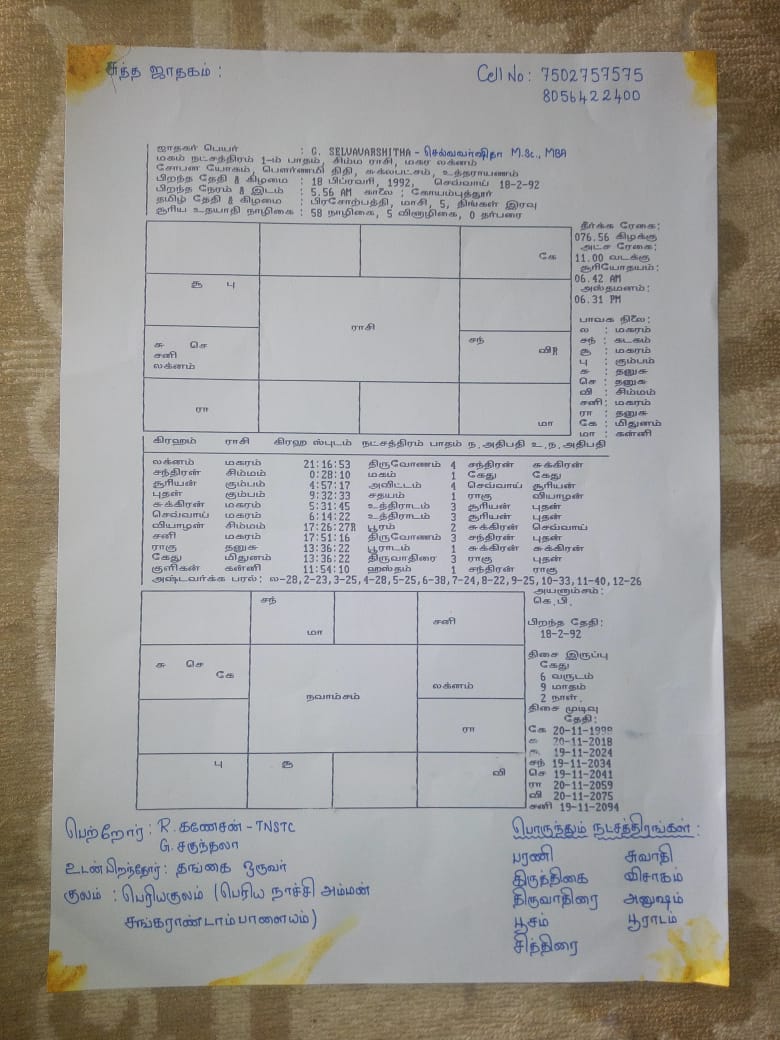 சுத்த ஜாதகம் :
Cell No : 7502757575
8056422400
ஜாதகர் பெயர் : G. SELVAVARSHITHA - செல்வவர்ஷிதா M.Sc., MBA
மகம் நட்சத்திரம் 1-ம் பாதம், சிம்ம ராசி, மகர லக்னம்
சோபன யோகம், பௌர்ணமி திதி, சுக்லபட்சம், உத்தராயணம்
பிறந்த தேதி & கிழமை : 18 பிப்ரவரி, 1992, செவ்வாய் 18-2-92
பிறந்த நேரம் & இடம் : 5.56 AM காலை ; கோயம்புத்தூர்
தமிழ் தேதி & கிழமை : பிரசோற்பத்தி, மாசி, 5, திங்கள் இரவு
சூரிய உதயாதி நாழிகை : 58 நாழிகை, 5 விநாழிகை, 0 தர்பரை
கே
சூ பு
ராசி
சு செ
சனி
லக்னம்
சந்
விR
ரா
மா
தீர்க்க ரேகை:
076.56 கிழக்கு
அட்ச ரேகை:
11.00 வடக்கு
சூரியோதயம்:
06.42 AM
அஸ்தமனம்:
06.31 PM
பாவக நிலை:
ல : மகரம்
சந் : கடகம்
சூ : மகரம்
பு : கும்பம்
சு : தனுசு
செ : தனுசு
வி : சிம்மம்
சனி : மகரம்
ரா : தனுசு
கே : மிதுனம்
மா : கன்னி
கிரஹம் ராசி கிரஹ ஸ்புடம் நட்சத்திரம் பாதம் ந.அதிபதி உ.ந.அதிபதி
லக்னம் மகரம் 21:16:53 திருவோணம் 4 சந்திரன் சுக்கிரன்
சந்திரன் சிம்மம் 0:28:10 மகம் 1 கேது கேது
சூரியன் கும்பம் 4:57:17 அவிட்டம் 4 செவ்வாய் சூரியன்
புதன் கும்பம் 9:32:33 சதயம் 1 ராகு வியாழன்
சுக்கிரன் மகரம் 5:31:45 உத்திராடம் 3 சூரியன் புதன்
செவ்வாய் மகரம் 6:14:22 உத்திராடம் 3 சூரியன் புதன்
வியாழன் சிம்மம் 17:26:27R பூரம் 2 சுக்கிரன் செவ்வாய்
சனி மகரம் 17:51:16 திருவோணம் 3 சந்திரன் புதன்
ராகு தனுசு 13:36:22 பூராடம் 1 சுக்கிரன் சுக்கிரன்
கேது மிதுனம் 13:36:22 திருவாதிரை 3 ராகு புதன்
குளிகன் கன்னி 11:54:10 ஹஸ்தம் 1 சந்திரன் ராகு
அஷ்டவர்க்க பரல்: ல-28,2-23,3-25,4-28,5-25,6-38,7-24,8-22,9-25,10-33,11-40,12-26
சந்
மா
சனி
சு செ
கே
நவாம்சம்
லக்னம்
ரா
பு
சூ
வி
அயனாம்சம்:
கெ.பி.
பிறந்த தேதி:
18-2-92
திசை இருப்பு
கேது
6 வருடம்
9 மாதம்
2 நாள்.
திசை முடிவு
தேதி:
கே 20-11-1998
சு 20-11-2018
சூ 19-11-2024
சந் 19-11-2034
செ 19-11-2041
ரா 20-11-2059
வி 20-11-2075
சனி 19-11-2094
பெற்றோர் : R. கணேசன் - TNSTC
G. சகுந்தலா
உடன்பிறந்தோர் : தங்கை ஒருவர்
குலம் : பெரியகுலம் (பெரிய நாச்சி அம்மன்
சுங்கராண்டாம்பாளையம்)
பொருந்தும் நட்சத்திரங்கள் :
பரணி சுவாதி
கிருத்திகை விசாகம்
திருவாதிரை அனுஷம்
பூசம் பூராடம்
சித்திரை